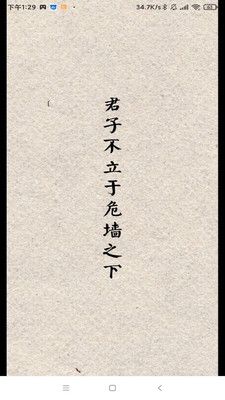 下午1:29
34.7K/s
君子不立于危墙之下